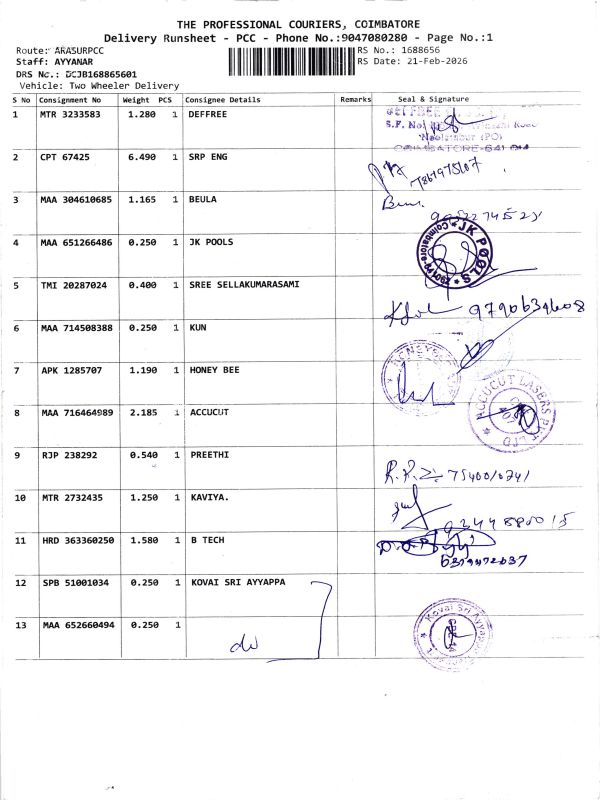 THE PROFESSIONAL COURIERS, COIMBATORE
Delivery Runsheet - PCC - Phone No.:9047080280 - Page No.:1
Route: ARASURPCC
RS No.: 1688656
Staff: AYYANAR
RS Date: 21-Feb-2026
DRS No.: DCJB168865601
Vehicle: Two Wheeler Delivery
S No Consignment No Weight PCS Consignee Details Remarks Seal & Signature
1 MTR 3233583 1.280 1 DEFFREE
S.F. No
COIMBATORE-641
2 CPT 67425 6.490 1 SRP ENG
3 MAA 304610685 1.165 1 BEULA
4 MAA 651266486 0.250 1 JK POOLS
JK POOLS
5 TMI 20287024 0.400 1 SREE SELLAKUMARASAMI
9790639608
6 MAA 714508388 0.250 1 KUN
7 APK 1285707 1.190 1 HONEY BEE
8 MAA 716464989 2.185 1 ACCUCUT
ACCUCUT LASERS PVT LTD
9 RJP 238292 0.540 1 PREETHI
10 MTR 2732435 1.250 1 KAVIYA.
11 HRD 363360250 1.580 1 B TECH
12 SPB 51001034 0.250 1 KOVAI SRI AYYAPPA
13 MAA 652660494 0.250 1
do
Kovai Sri Ayyappa